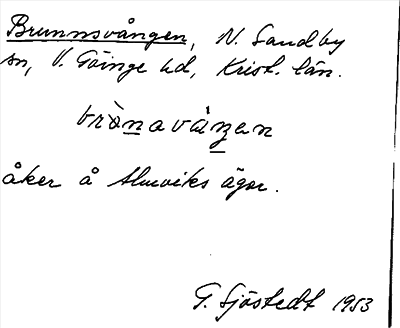 Brunnsvången, N. Sandby
sn, V. Göinge hd, Krist. län.
brònavåŋen
åker å Almviks ägor.
G. Sjöstedt 1953